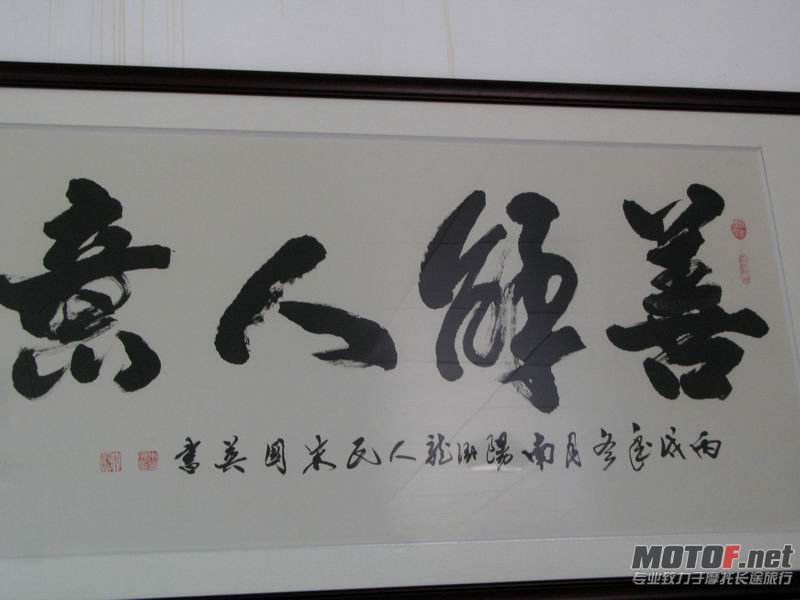 善解人意
丙戌年冬月南阳卧龙人氏宋国英书
MOTOF.net
专业致力于摩托长途旅行